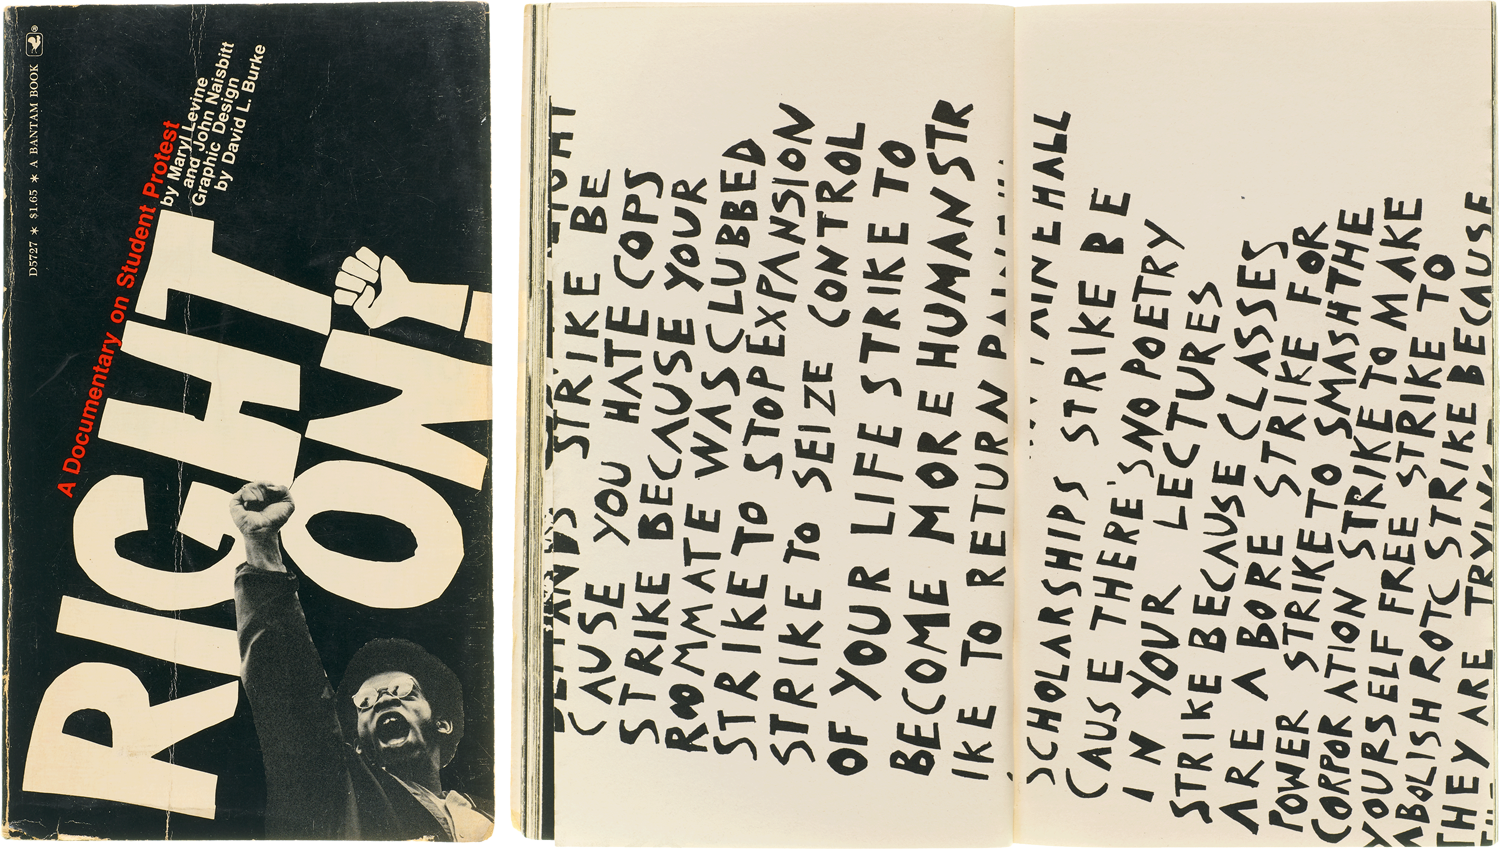 D5727 * $1.65 * A BANTAM BOOK
A Documentary on Student Protest
by Maryl Levine
and John Naisbitt
Graphic Design
by David L. Burke
RIGHT
ON!
STRIKE BE
CAUSE YOU HATE COPS
STRIKE BECAUSE YOUR
ROOMMATE WAS CLUBBED
STRIKE TO STOP EXPANSION
STRIKE TO SEIZE CONTROL
OF YOUR LIFE STRIKE TO
BECOME MORE HUMAN STR
IKE TO RETURN
AINE HALL
SCHOLARSHIPS STRIKE BE
CAUSE THERE'S NO POETRY
IN YOUR LECTURES
STRIKE BECAUSE CLASSES
ARE A BORE STRIKE FOR
POWER STRIKE TO SMASH THE
CORPORATION STRIKE TO MAKE
YOURSELF FREE STRIKE TO
ABOLISH ROTC STRIKE BECAUSE
THEY ARE TRYING